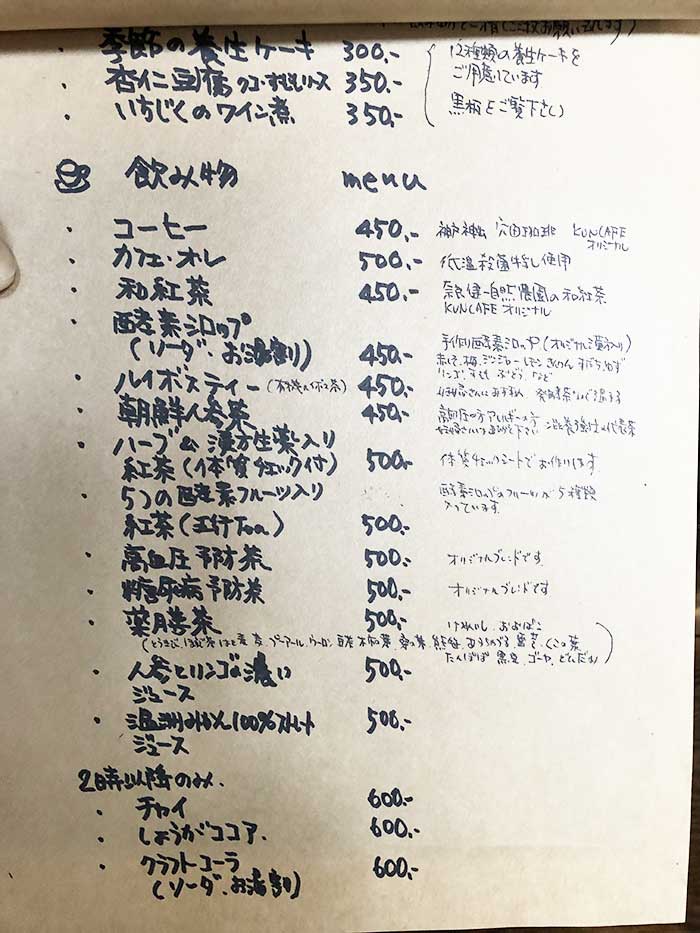 ・季節の養生ケーキ 300.- 12種類の養生ケーキを
ご用意しています
・杏仁豆腐 クコ・すももソース 350.-
・いちじくのワイン煮 350.- 黒板をご覧下さい
飲み物 menu
・コーヒー 450.- 神戸 珈琲 KUNCAFE
オリジナル
・カフェ・オレ 500.- 低温殺菌牛乳使用
・和紅茶 450.- 奈良 健一自然農園の和紅茶
KUNCAFE オリジナル
・酵素シロップ 手作り酵素シロップ(オリジナル漢方入り)
(ソーダ・お湯割り) 450.- 赤しそ、梅、ジンジャーレモン、きんかん、すだち、ゆず
リンゴ、すもも、ぶどう、など
・ルイボスティー 450.- 妊婦さんにおすすめ
・朝鮮人参茶 450.- 高血圧の方
・ハーブ&漢方生薬入り
紅茶(体質チェック付) 500.- 体質チェックシートでお作りします
・5つの酵素フルーツ入り 酵素シロップのフルーツが5種類
入っています
紅茶(五行Tea) 500.-
・高血圧予防茶 500.- オリジナルブレンドです
・糖尿病予防茶 500.- オリジナルブレンドです
・薬膳茶 500.-
たんぽぽ 黒豆 ゴーヤ どくだみ)
・人参とリンゴの濃い 500.-
ジュース
・温州みかん100%ストレート 500.-
ジュース
2時以降のみ.
・チャイ 600.-
・しょうがココア. 600.-
・クラフトコーラ 600.-
(ソーダ・お湯割り)